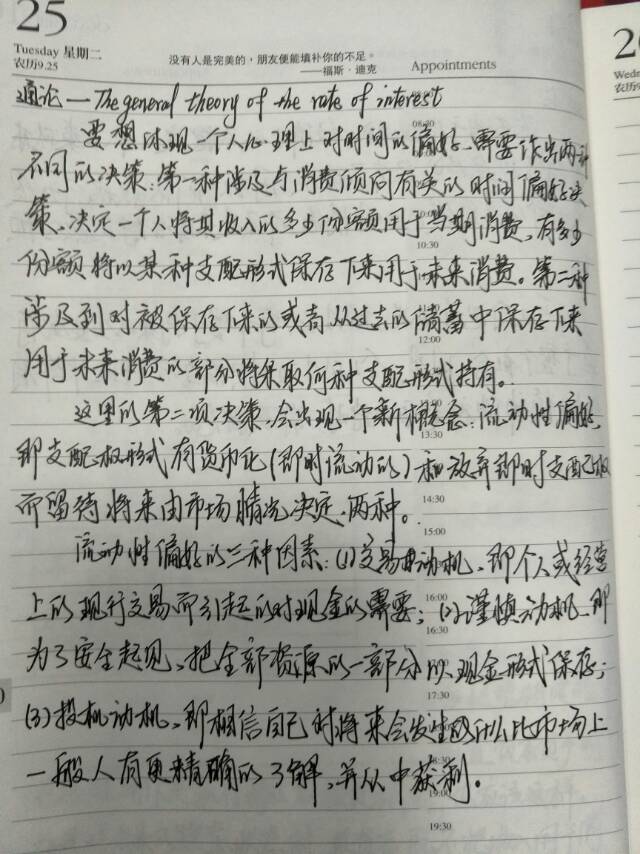 25
Tuesday 星期二
农历9.25
没有人是完美的，朋友便能填补你的不足。
——福斯·迪克
Appointments
通论—The general theory of the rate of interest
要想体现一个人心理上对时间的偏好，需要作出两种
不同的决策：第一种涉及与消费倾向有关的时间偏好决
策，决定一个人将其收入的多少份额用于当期消费，有多少
10:30
份额将以某种支配形式保存下来用于未来消费。第二种
涉及到对被保存下来的或者从过去的储蓄中保存下来
12:00
用于未来消费的部分将采取何种支配形式持有。
这里的第二项决策，会出现一个新概念：流动性偏好，
13:30
即支配权形式有货币化(即时流动的)和放弃即时支配权
而留待将来由市场情况决定，两种。
14:30
15:00
流动性偏好的三种因素：(1)交易动机，即个人或经营
上的现行交易而引起的对现金的需要；(2)谨慎动机，即
16:00
16:30
为了安全起见，把全部资源的一部分以现金形式保存；
17:30
(3)投机动机，即相信自己对将来会发生什么比市场上
一般人有更精确的了解，并从中获利。
19:00
19:30
2
Wedn
农历